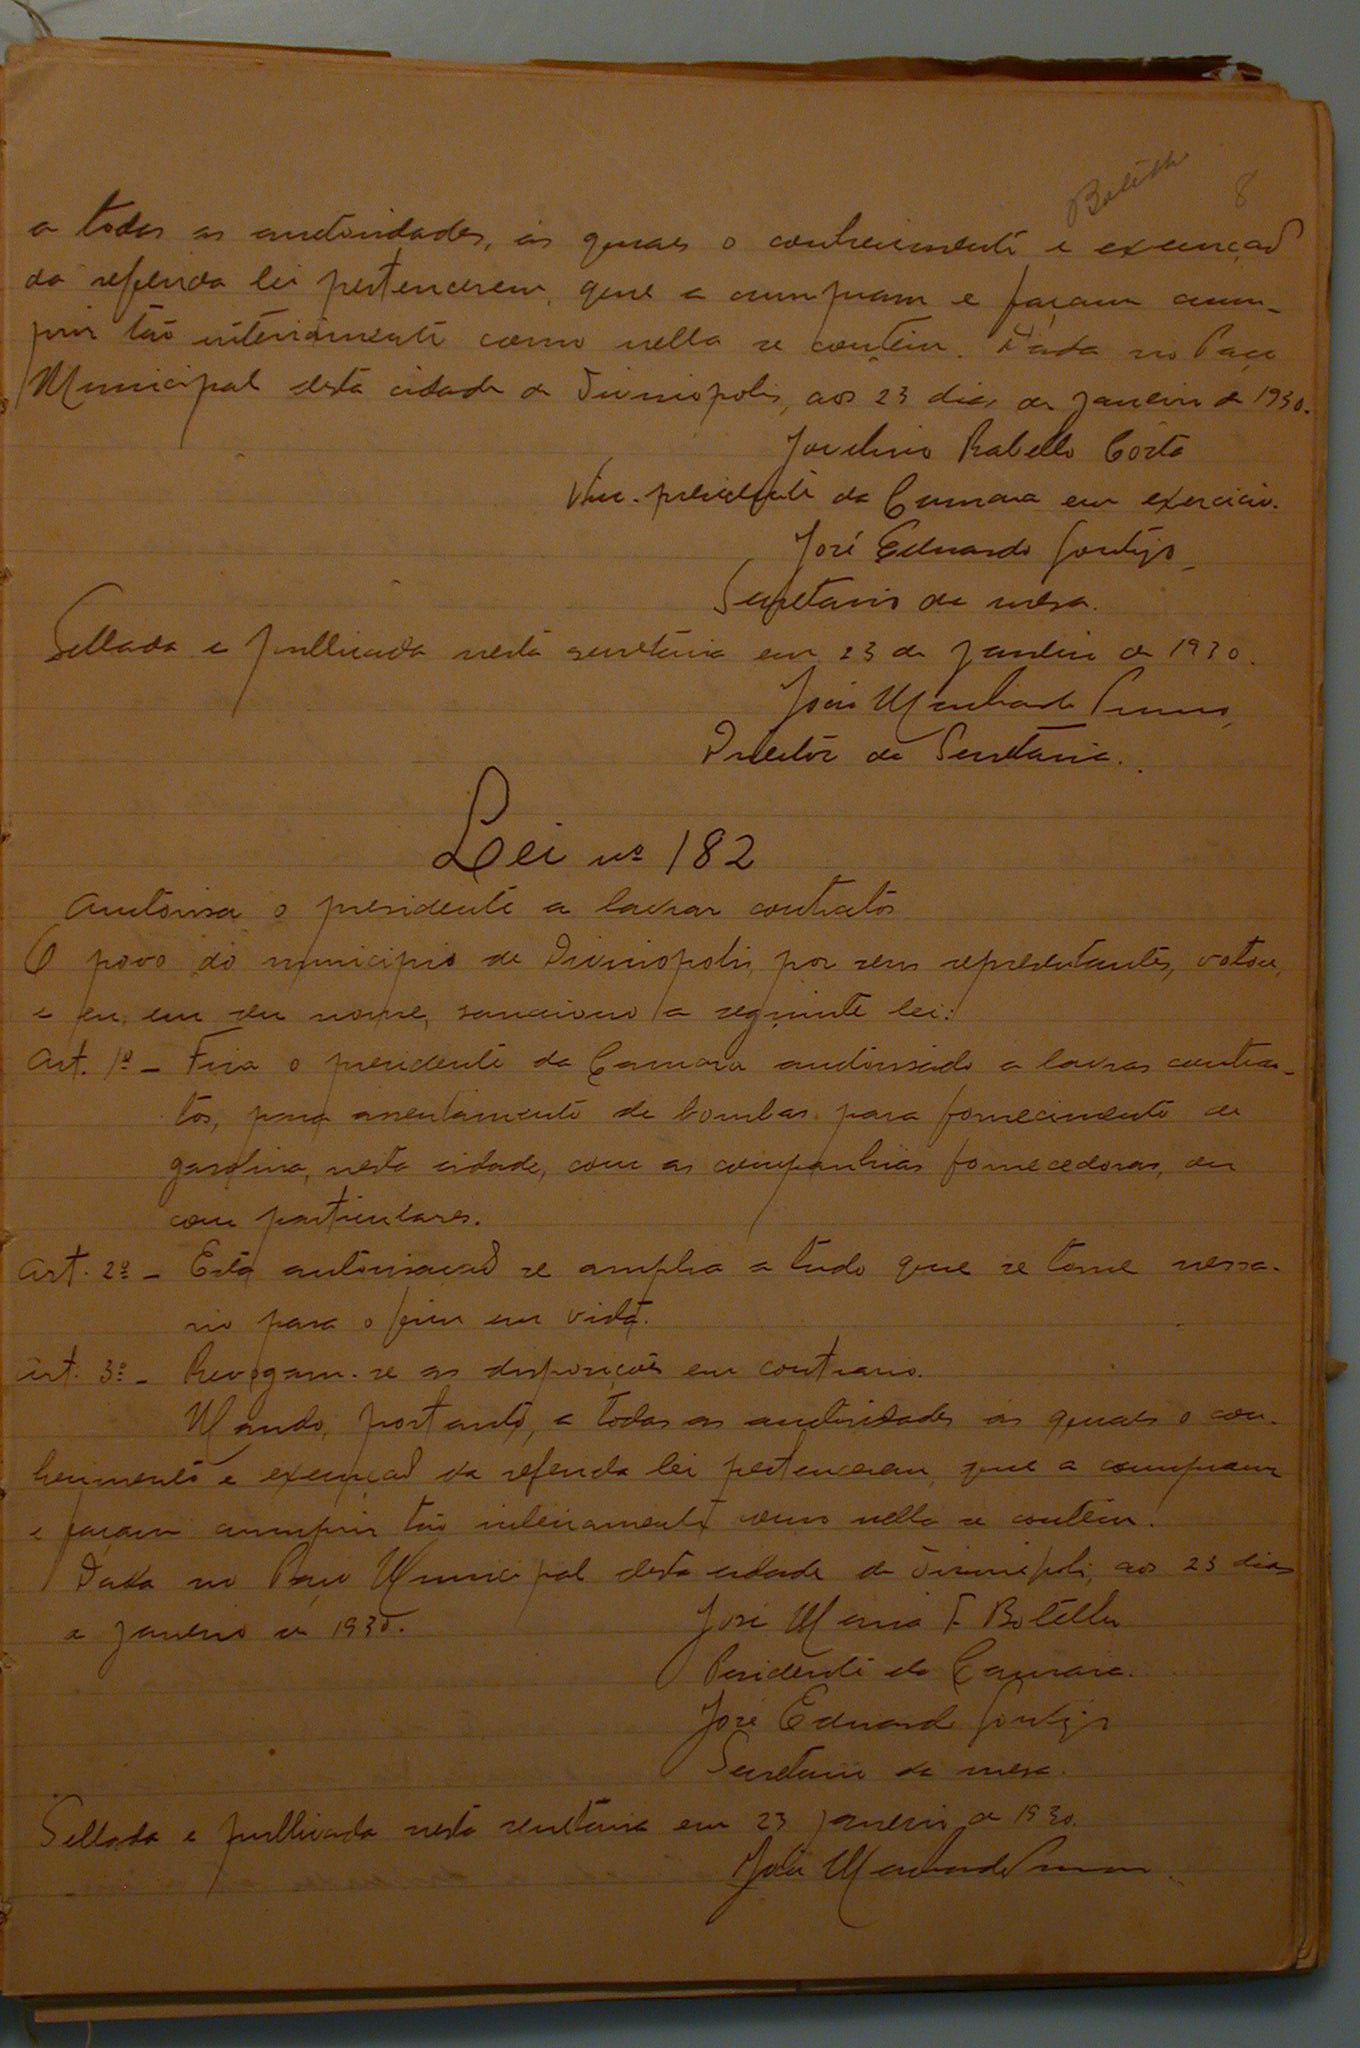 8
a todas as auctoridades, ás quaes o conhecimento e execução
da referida lei pertencerem, que a cumpram e façam cum-
prir tão inteiramente como nella se contém. Dada no Paço
Municipal desta cidade de Divinopolis, aos 23 dias de janeiro de 1930.
Jovelino Rabello Costa
Vice-presidente da Camara em exercicio.
José Eduardo Gontijo
Secretario da mesa.
Sellada e publicada nesta secretaria em 23 de janeiro de 1930.
João Machado
Director da Secretaria.
Lei nº 182
Auctorisa o presidente a lavrar contratos
O povo do municipio de Divinopolis, por seus representantes, votou,
e eu, em seu nome, sancciono a seguinte lei:
Art. 1º - Fica o presidente da Camara auctorisado a lavrar contra-
tos, para assentamento de bombas para fornecimento de
gasolina, nesta cidade, com as companhias fornecedoras, ou
com particulares.
Art. 2º - Esta autorisação se amplia a tudo que se torne nessa-
rio para o fim em vista.
Art. 3º - Revogam-se as disposições em contrario.
Mando, portanto, a todas as auctoridades ás quaes o con-
hecimento e execução da referida lei pertencerem, que a cumpram
e façam cumprir tão inteiramente como nella se contém.
Dada no Paço Municipal desta cidade de Divinopolis, aos 23 dias
de janeiro de 1930.
José Maria F. Botelho
Presidente da Camara.
José Eduardo Gontijo
Secretario da mesa.
Sellada e publicada nesta secretaria em 23 janeiro de 1930.
João Machado